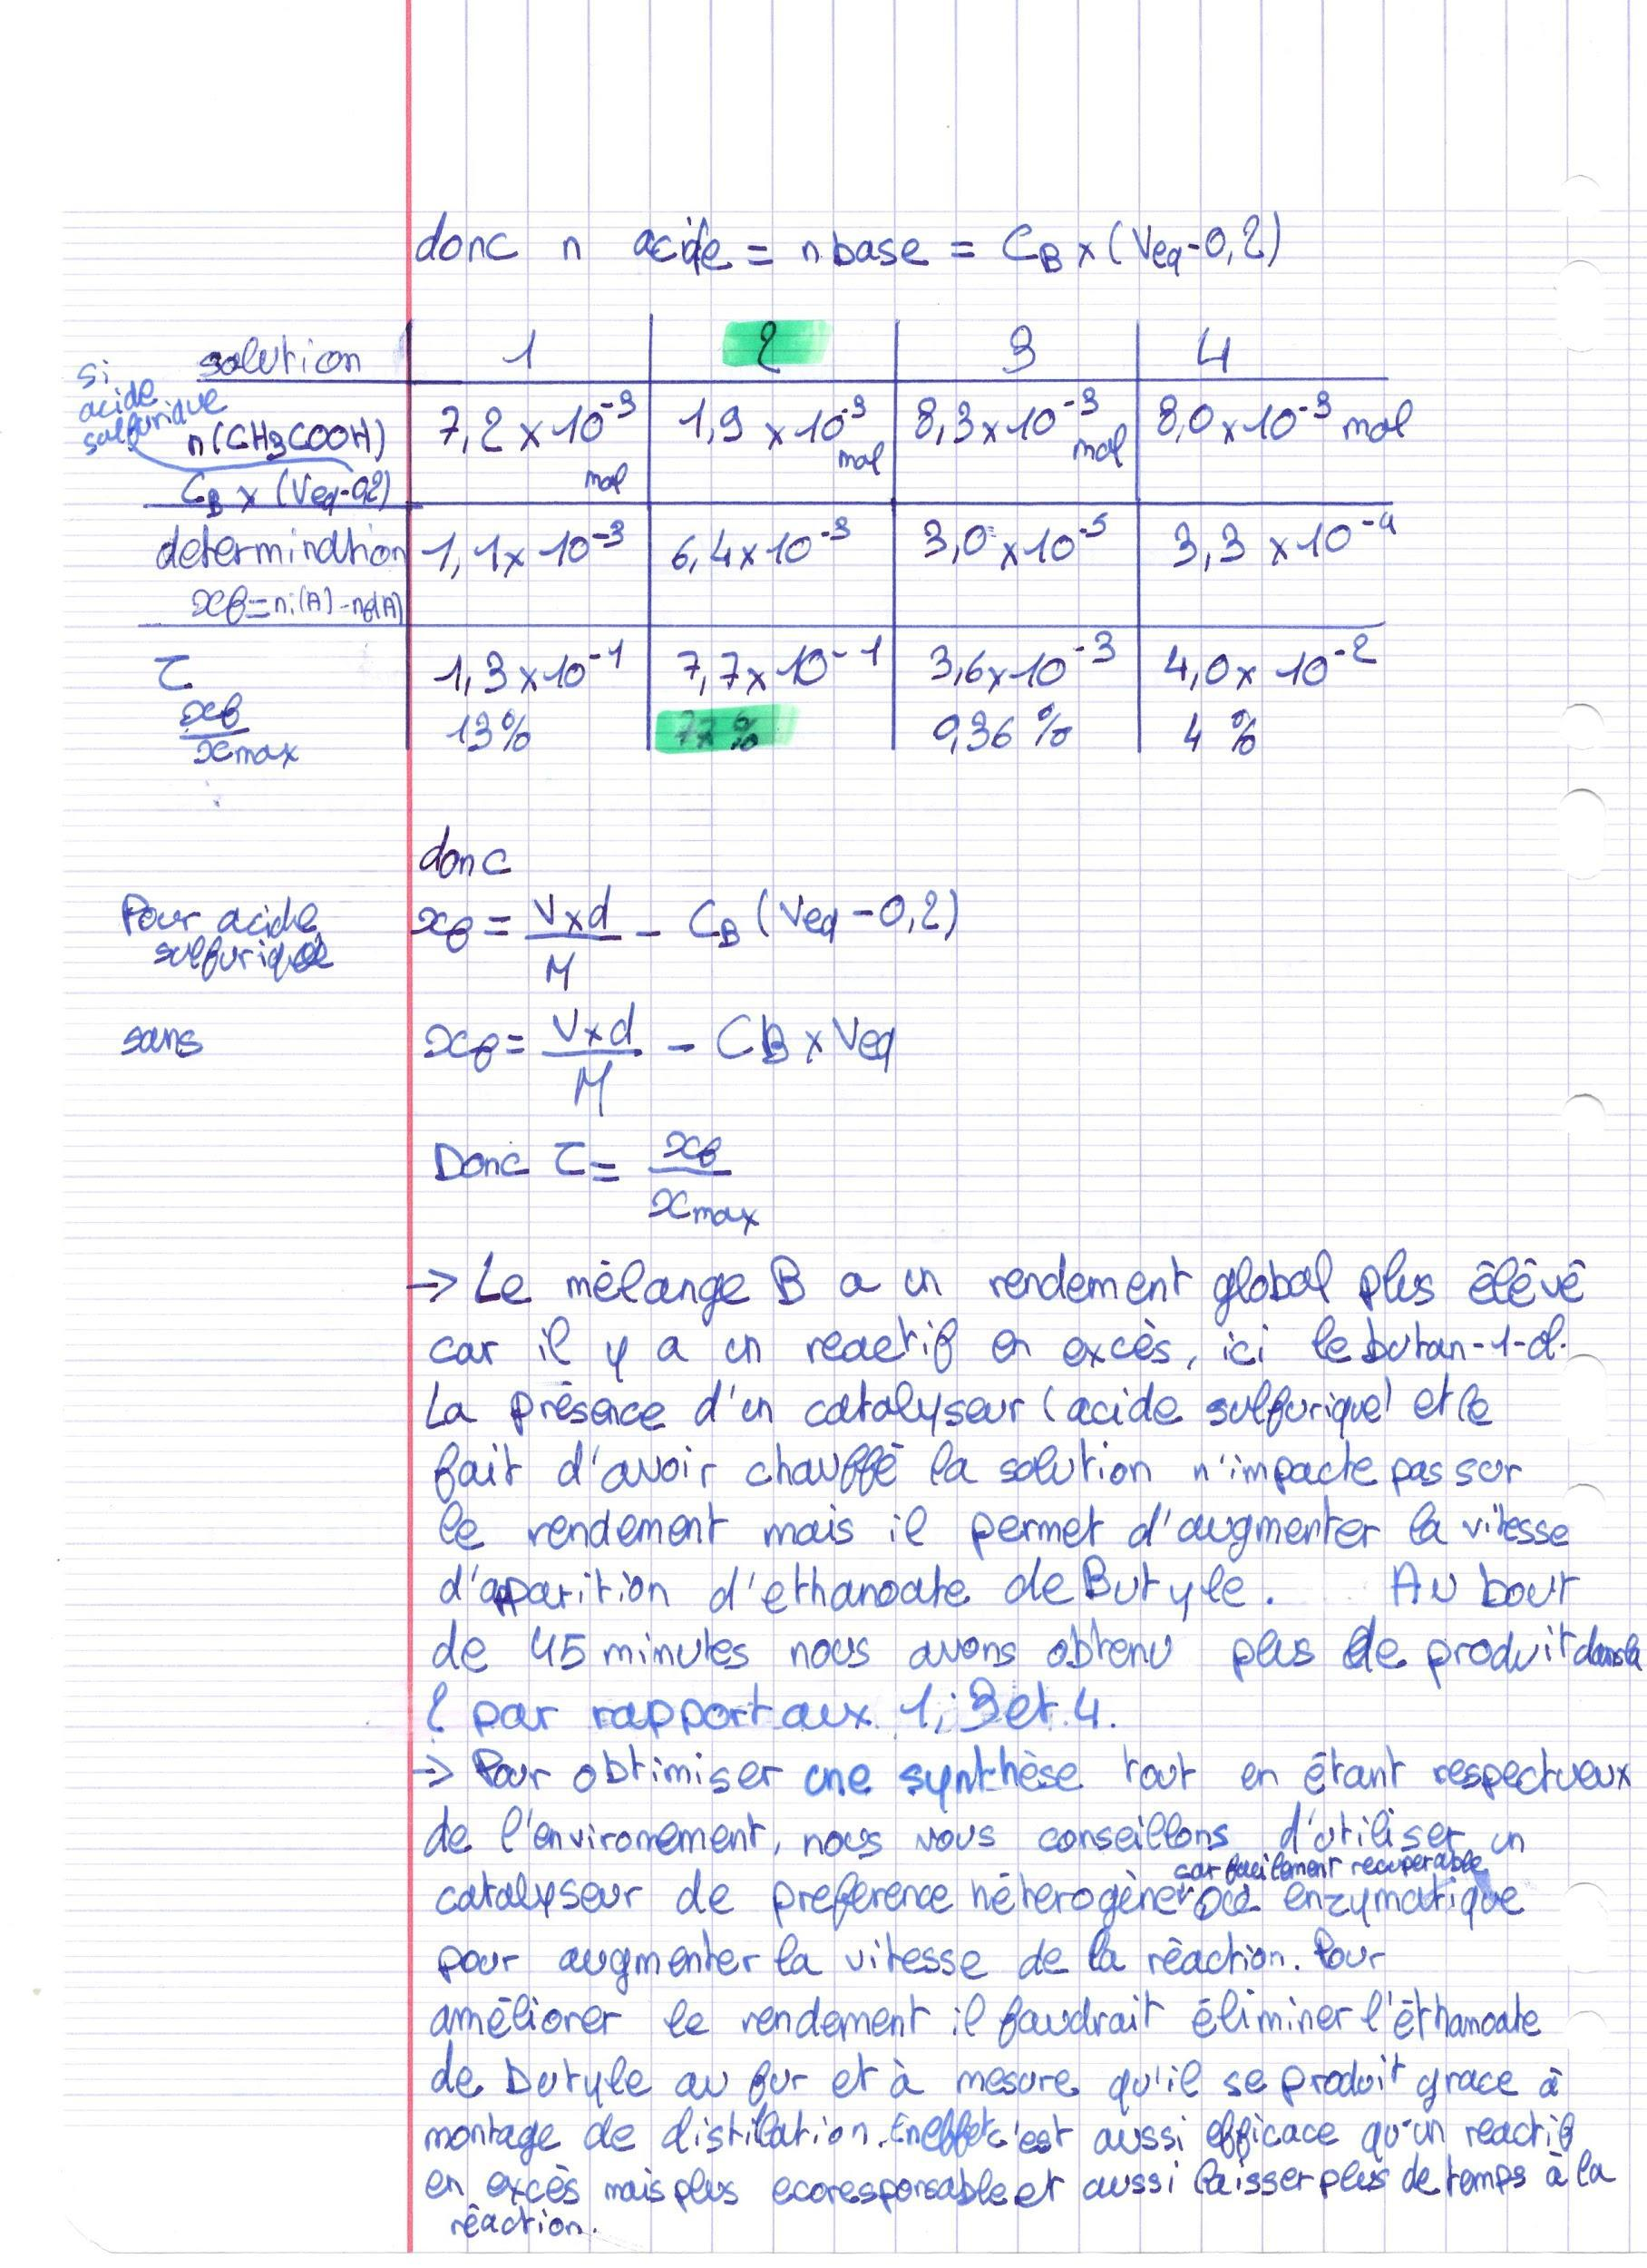 donc n acide = n base = CB x (Veq-0,2)
solution 1 2 3 4
si acide sulfurique
n(CH3COOH) 7,2 x 10^-3 mol 1,9 x 10^-3 mol 8,3 x 10^-3 mol 8,0 x 10^-3 mol
CB x (Veq-0,2)
determination 1,1 x 10^-3 6,4 x 10^-3 3,0 x 10^-5 3,3 x 10^-4
xf = ni(A) - nf(A)
τ 1,3 x 10^-1 7,7 x 10^-1 3,6 x 10^-3 4,0 x 10^-2
xf / xmax 13% 77 % 0,36 % 4 %
donc
Pour acide sulfurique xf = V x d / M - CB (Veq - 0,2)
sans xf = V x d / M - CB x Veq
Donc τ = xf / xmax
→ Le mélange B a un rendement global plus élévé
car il y a un reactif en excès, ici le butan-1-ol.
La présence d'un catalyseur (acide sulfurique) et le
fait d'avoir chauffé la solution n'impacte pas sur
le rendement mais il permet d'augmenter la vitesse
d'apparition d'ethanoate de Butyle. Au bout
de 45 minutes nous avons obtenu plus de produit dans la
2 par rapport aux 1, 3 et 4.
→ Pour obtimiser une synthèse tout en étant respectueux
de l'environement, nous vous conseillons d'utiliser un
catalyseur de preference héterogène car facilement recuperable ou enzymatique
pour augmenter la vitesse de la réaction. Pour
améliorer le rendement il faudrait éliminer l'éthanoate
de butyle au fur et à mesure qu'il se produit grace à
montage de distillation. En effet c'est aussi efficace qu'un reactif
en excès mais plus ecoresponsable et aussi laisser plus de temps à la
réaction.